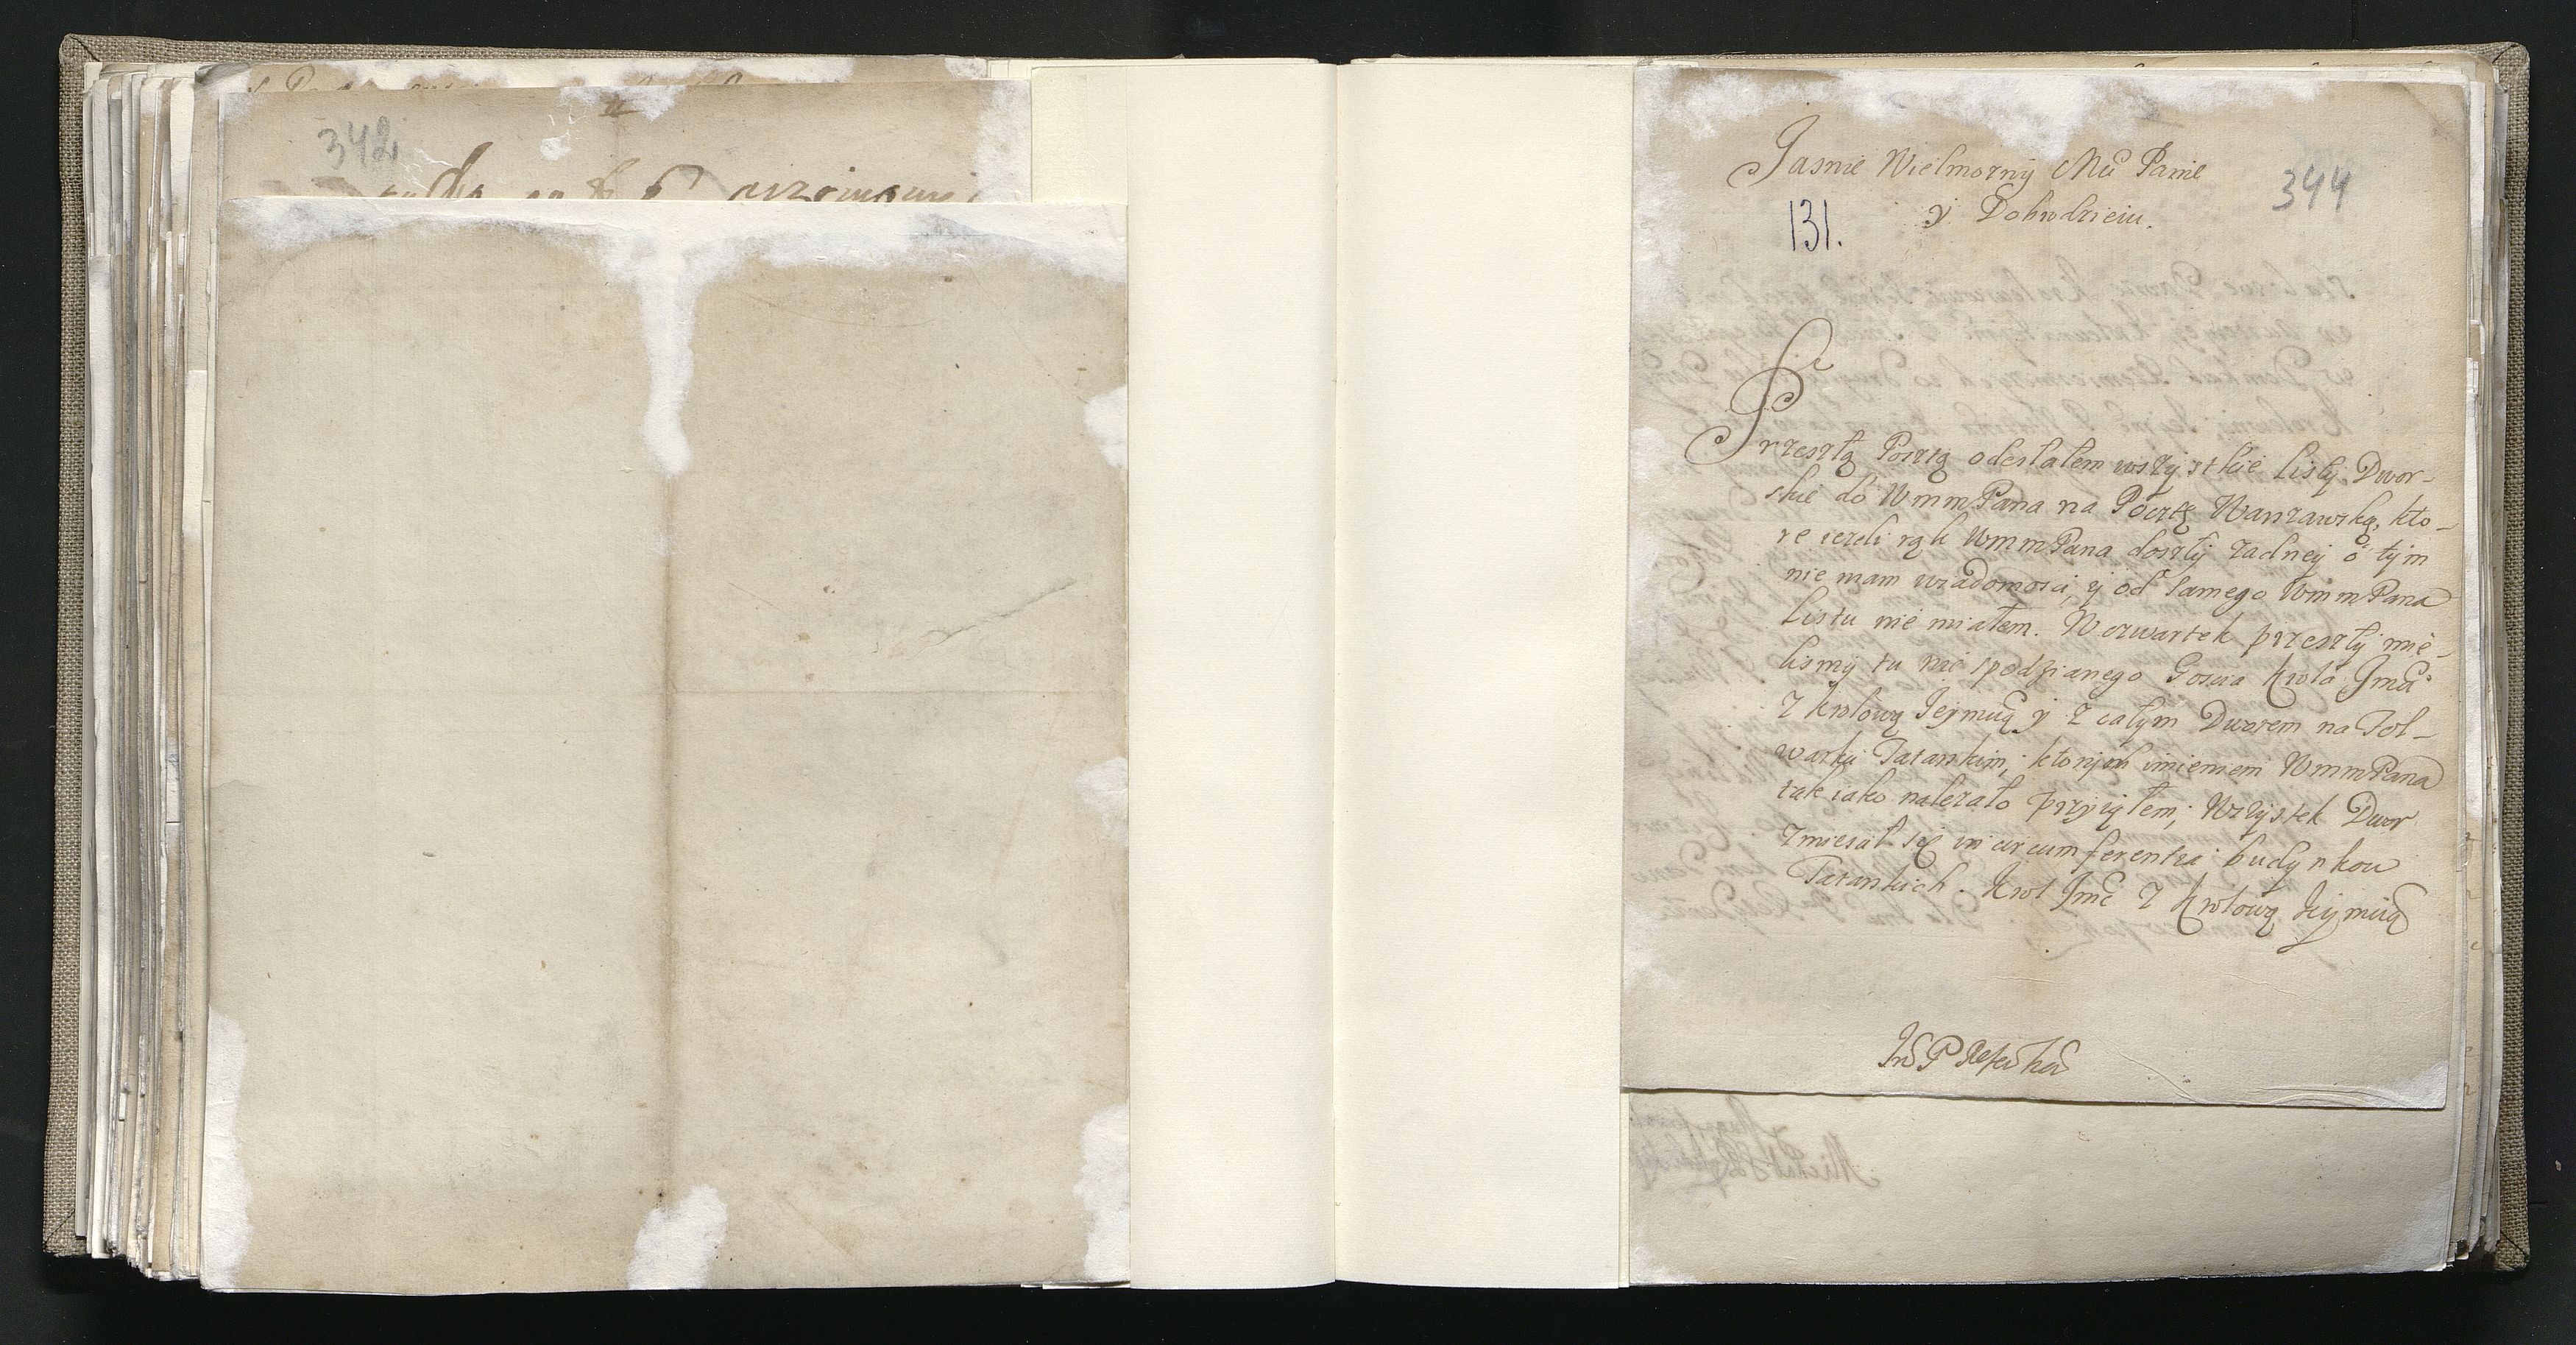 342
Jasnie Wielmozny Mci Panie
344
131.
y Dobrodzieiu.
Przeszłą Pocztą odesłałem wszystkie listy Dwor-
skie do WmmPana na Pocztę Warszawską, kto-
re iezeli rąk WmmPana doszły zadney o tym
nie mam wiadomosci, y od samego WmmPana
listu nie miałem. W czwartek przeszły mie-
lismy tu nie spodzianego Goscia Krola Jmci
z Krolową Jeymcią y z całym Dworem na Fol-
warku Tatarskim, ktorych imieniem WmmPana
tak iako nalezało przyiąłem; Wszystek Dwor
zmiescał się in circumferentia budynkow
Tatarskich. Krol Jmc z Krolową Jeymcią